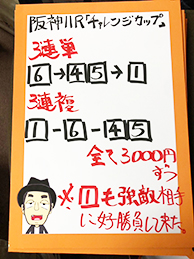 阪神11R『チャレンジカップ』
3連単
6→45→1
3連複
1-6-45
全て3000円
ずつ
※1も強敵相手
に好勝負して来た。